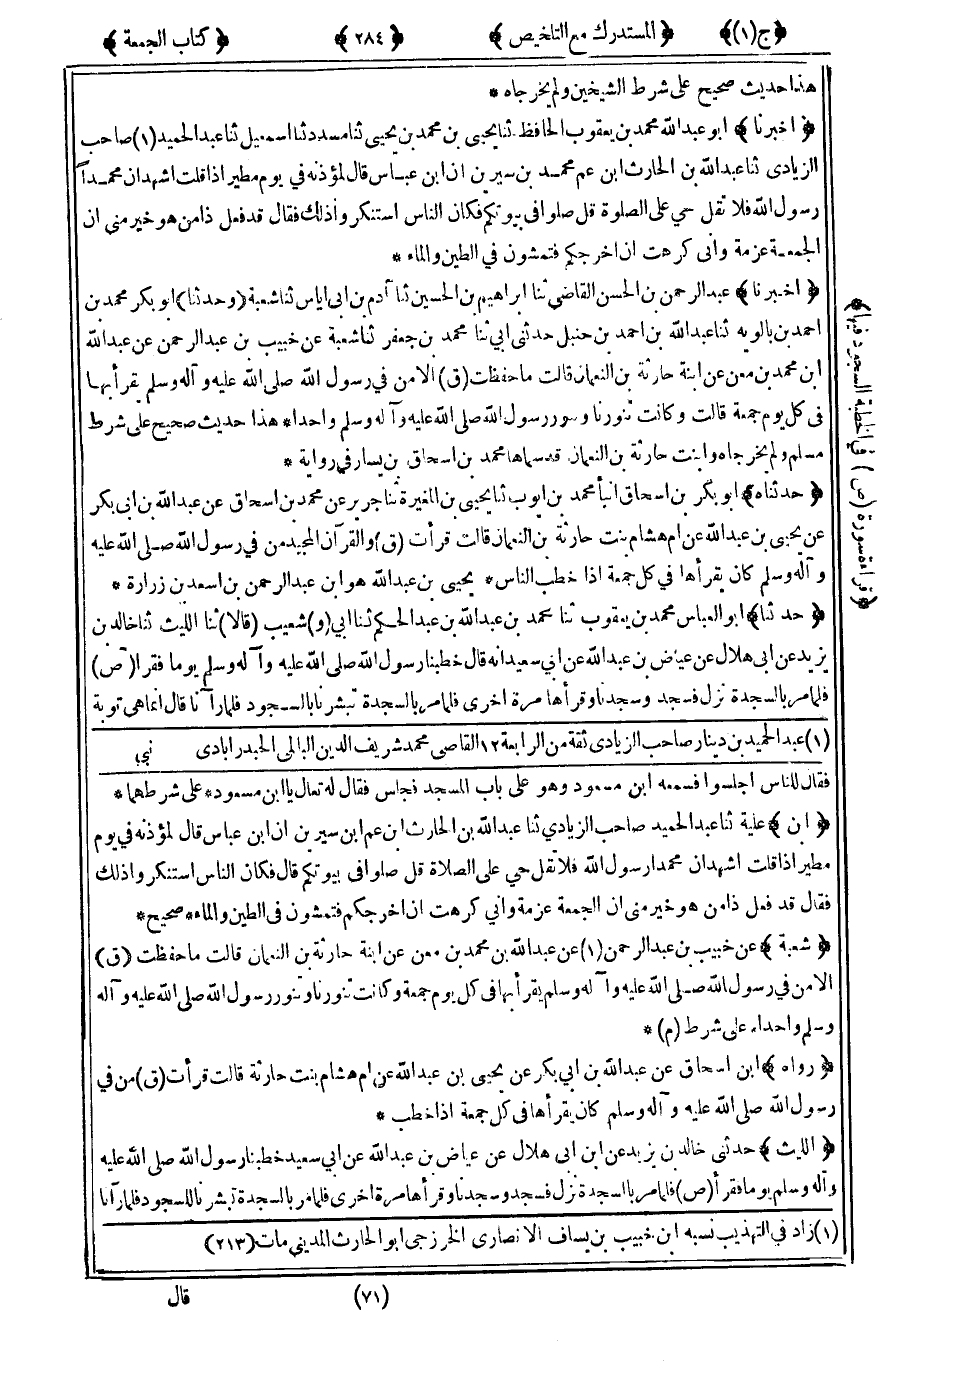 ﴿ ج (١) ﴾ ﴿ المستدرك مع التلخيص ﴾ ﴿ ٢٨٤ ﴾ ﴿ كتاب الجمعة ﴾
هذا حديث صحيح على شرط الشيخين ولم يخرجاه *
﴿ اخبرنا ﴾ ابو عبدالله محمد بن يعقوب الحافظ ثنا يحيى بن محمد بن يحيى ثنا مسدد ثنا اسمعيل ثنا عبدالحميد (١) صاحب
الزيادى ثنا عبدالله بن الحارث ابن عم محمد بن سيرين ان ابن عباس قال لمؤذنه في يوم مطير اذا قلت اشهد ان محمدا
رسول الله فلا تقل حي على الصلوة قل صلوا فى بيوتكم فكان الناس استنكروا ذلك فقال قد فعل ذا من هو خير مني ان
الجمعة عزمة وانى كرهت ان اخرجكم فتمشون في الطين والماء *
﴿ اخبرنا ﴾ عبدالرحمن بن الحسن القاضي ثنا ابراهيم بن الحسين ثنا آدم بن ابى اياس ثنا شعبة (وحدثنا) ابو بكر محمد بن
احمد بن بالويه ثنا عبدالله بن احمد بن حنبل حدثنى ابي ثنا محمد بن جعفر ثنا شعبة عن خبيب بن عبدالرحمن عن عبدالله
ابن محمد بن معن عن ابنة حارثة بن النعمان قالت ما حفظت (ق) الا من في رسول الله صلى الله عليه وآله وسلم يقرأ بها
فى كل يوم جمعة قالت وكانت تنورنا وسور رسول الله صلى الله عليه وآله وسلم واحدا * هذا حديث صحيح على شرط
مسلم ولم يخرجاه وابنت حارثة بن النعمان قد سماها محمد بن اسحاق بن يسار في رواية *
﴿ حدثناه ﴾ ابو بكر بن اسحاق انبأ محمد بن ايوب ثنا يحيى بن المغيرة ثنا جرير عن محمد بن اسحاق عن عبدالله بن ابى بكر
عن يحيى بن عبدالله عن ام هشام بنت حارثة بن النعمان قالت قرأت (ق) والقرآن المجيد من في رسول الله صلى الله عليه
وآله وسلم كان يقرأها في كل جمعة اذا خطب الناس * يحيى بن عبدالله هو ابن عبدالرحمن بن اسعد بن زرارة *
﴿ حدثنا ﴾ ابو العباس محمد بن يعقوب ثنا محمد بن عبدالله بن عبدالحكم ثنا ابي (و) شعيب (قالا) ثنا الليث ثنا خالد بن
يزيد عن ابى هلال عن عياض بن عبدالله عن ابي سعيد انه قال خطبنا رسول الله صلى الله عليه وآله وسلم يوما فقرأ (ص)
فلما مر بالسجدة نزل فسجد وسجدنا وقرأها مرة اخرى فلما مر بالسجدة تبشرنا بالسجود فلما رآنا قال انما هى توبة
(١) عبد الحميد بن دينار صاحب الزيادى ثقة من الرابعة ١٢ القاضى محمد شريف الدين البالى الحيدرابادى نبي
فقال للناس اجلسوا فسمعه ابن مسعود وهو على باب المسجد فجلس فقال له تعال يا ابن مسعود * على شرطهما *
﴿ ابن ﴾ علية ثنا عبدالحميد صاحب الزيادي ثنا عبدالله بن الحارث ابن عم ابن سيرين ان ابن عباس قال لمؤذنه في يوم
مطير اذا قلت اشهد ان محمدا رسول الله فلا تقل حي على الصلاة قل صلوا فى بيوتكم قال فكان الناس استنكروا ذلك
فقال قد فعل ذا من هو خير منى ان الجمعة عزمة واني كرهت ان اخرجكم فتمشون فى الطين والماء * صحيح *
﴿ شعبة ﴾ عن خبيب بن عبدالرحمن (١) عن عبدالله بن محمد بن معن عن ابنة حارثة بن النعمان قالت ما حفظت (ق)
الا من في رسول الله صلى الله عليه وآله وسلم يقرأ بها فى كل يوم جمعة وكانت تنورنا وتنور رسول الله صلى الله عليه وآله
وسلم واحدا * على شرط (م) *
﴿ رواه ﴾ ابن اسحاق عن عبدالله بن ابي بكر عن يحيى بن عبدالله عن ام هشام بنت حارثة قالت قرأت (ق) من في
رسول الله صلى الله عليه وآله وسلم كان يقرأها فى كل جمعة اذا خطب *
﴿ الليث ﴾ حدثنى خالد بن يزيد عن ابن ابى هلال عن عياض بن عبدالله عن ابي سعيد خطبنا رسول الله صلى الله عليه
وآله وسلم يوما فقرأ (ص) فلما مر بالسجدة نزل فسجد وسجدنا وقرأها مرة اخرى فلما مر بالسجدة تبشرنا للسجود فلما رآنا
(١) زاد في التهذيب نسبه ابن خبيب بن يساف الانصارى الخزرجى ابو الحارث المديني مات (٢١٣)
(٧١) قال
﴿ قراءة سورة (ص) في الخطبة السجود فيها ﴾